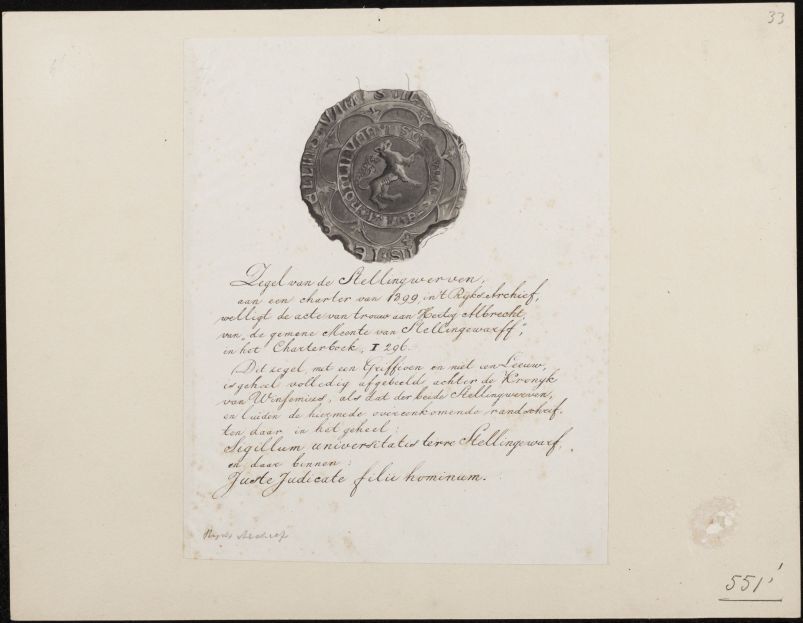 33
Zegel van de Stellingwerven,
aan een charter van 1399, in 't Rijks Archief,
welligt de acte van trouw aan Hertog Albrecht,
van "de gemene Meente van Stellingewarff",
in het Charterboek, I 296.
(Dit zegel, met een Griffioen en niet een Leeuw,
is geheel volledig afgebeeld achter de Kronyk
van Winsemius, als dat der beide Stellingwerven,
en luiden de hiermede overeenkomende randschrif-
ten daar in het geheel:
Sigillum universitatis terre Stellingewarf,
en daar binnen:
Juste Judicate filii hominum.
Rijks Archief
551'